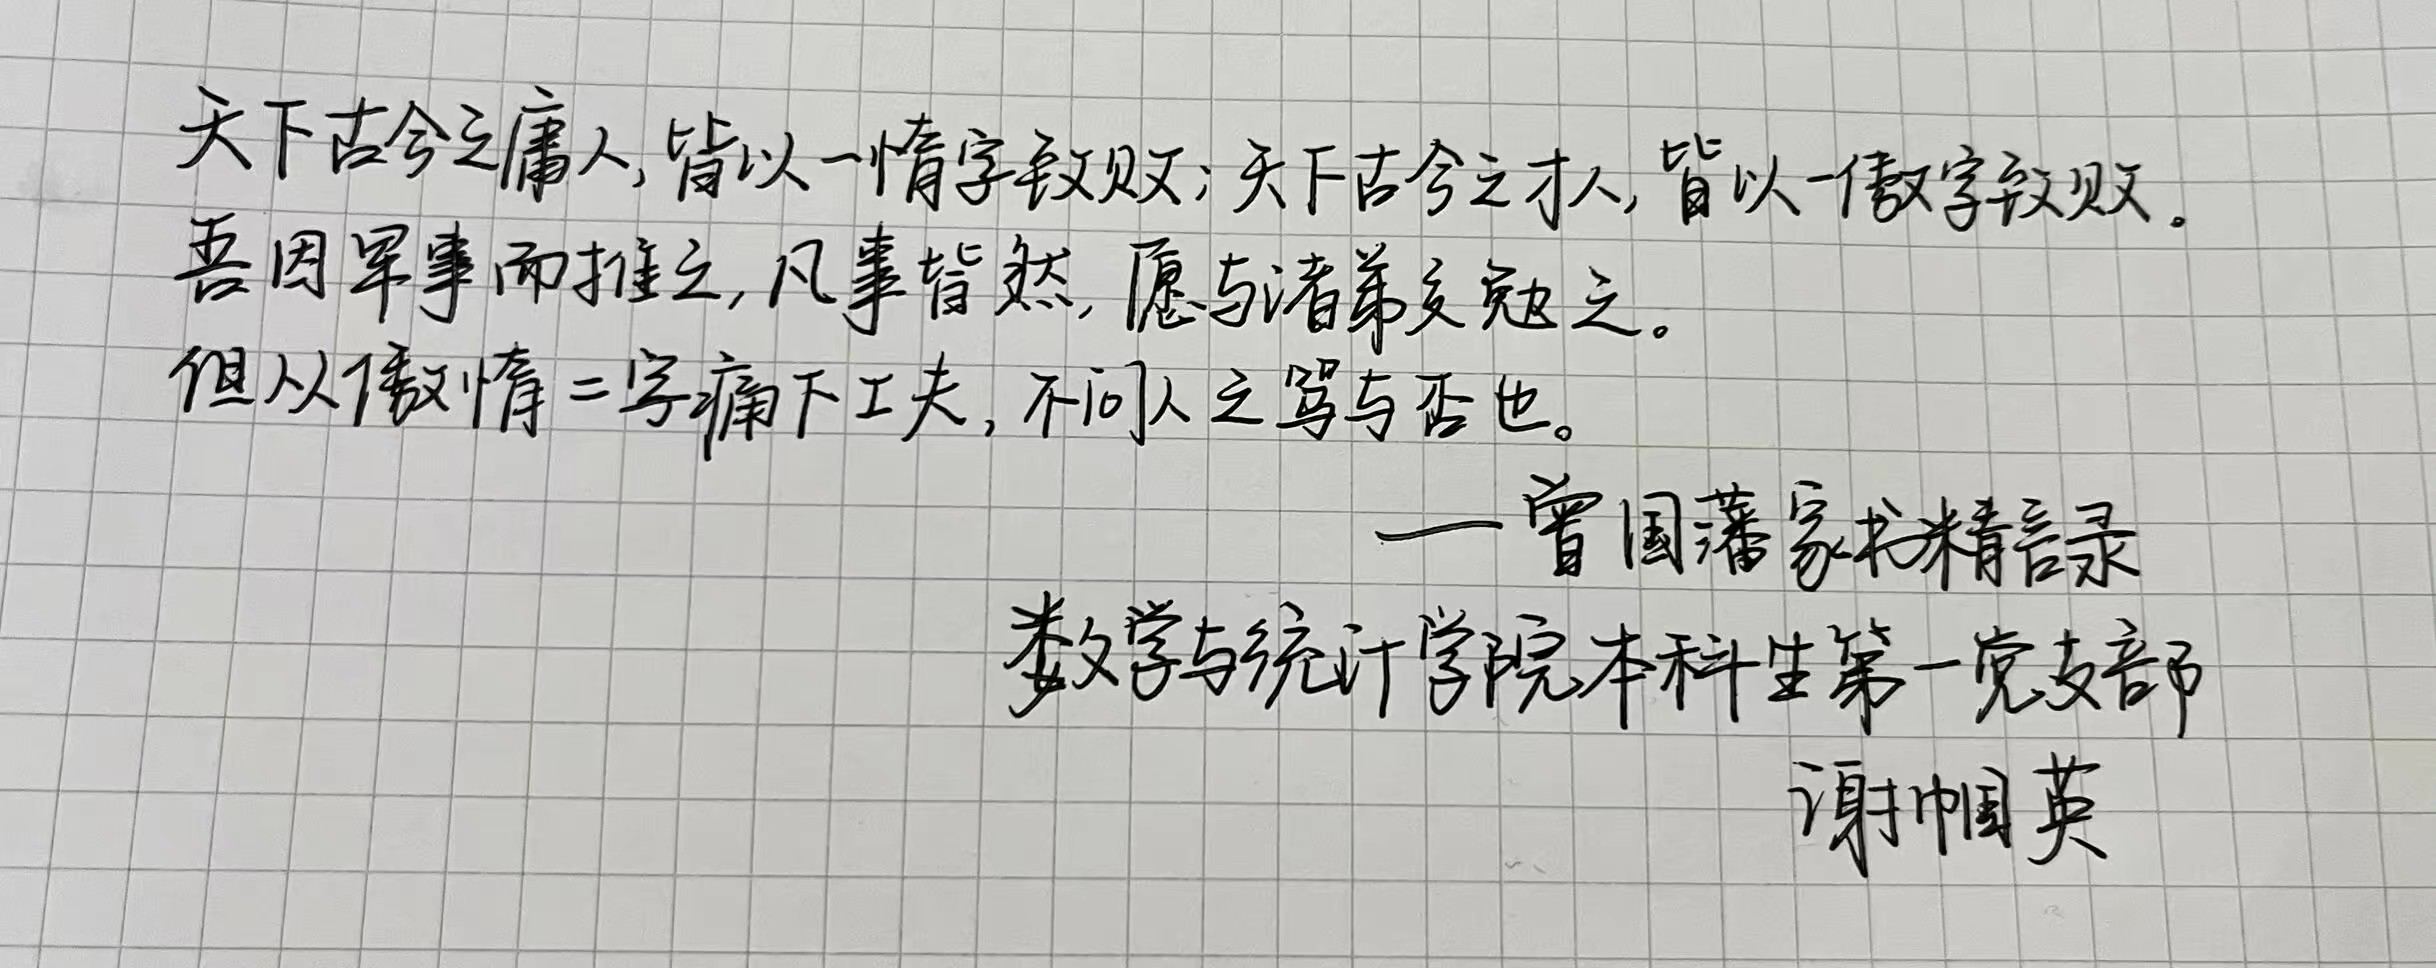 天下古今之庸人，皆以一惰字致败；天下古今之才人，皆以一傲字致败。
吾因军事而推之，凡事皆然，愿与诸弟交勉之。
但从傲惰二字痛下工夫，不问人之骂与否也。
——曾国藩家书精言录
数学与统计学院本科生第一党支部
谢帼英